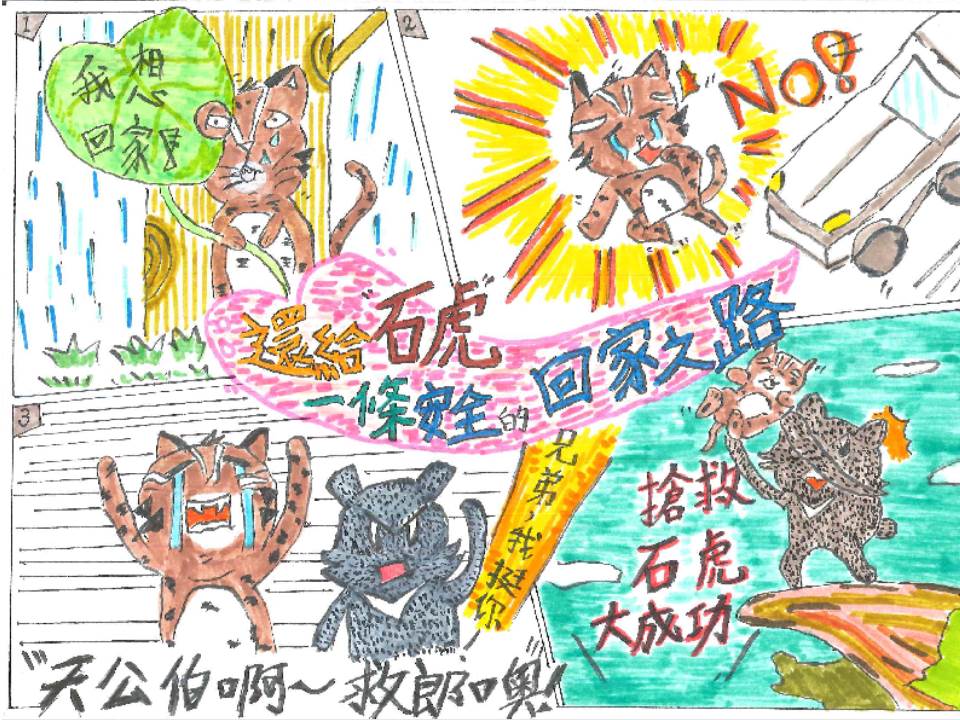 1
我想
回家!
2
NO!
還給"石虎"
一條安全的回家之路
3
兄弟,我挺你
"天公伯啊~救郎喔!"
搶救
石虎
大成功